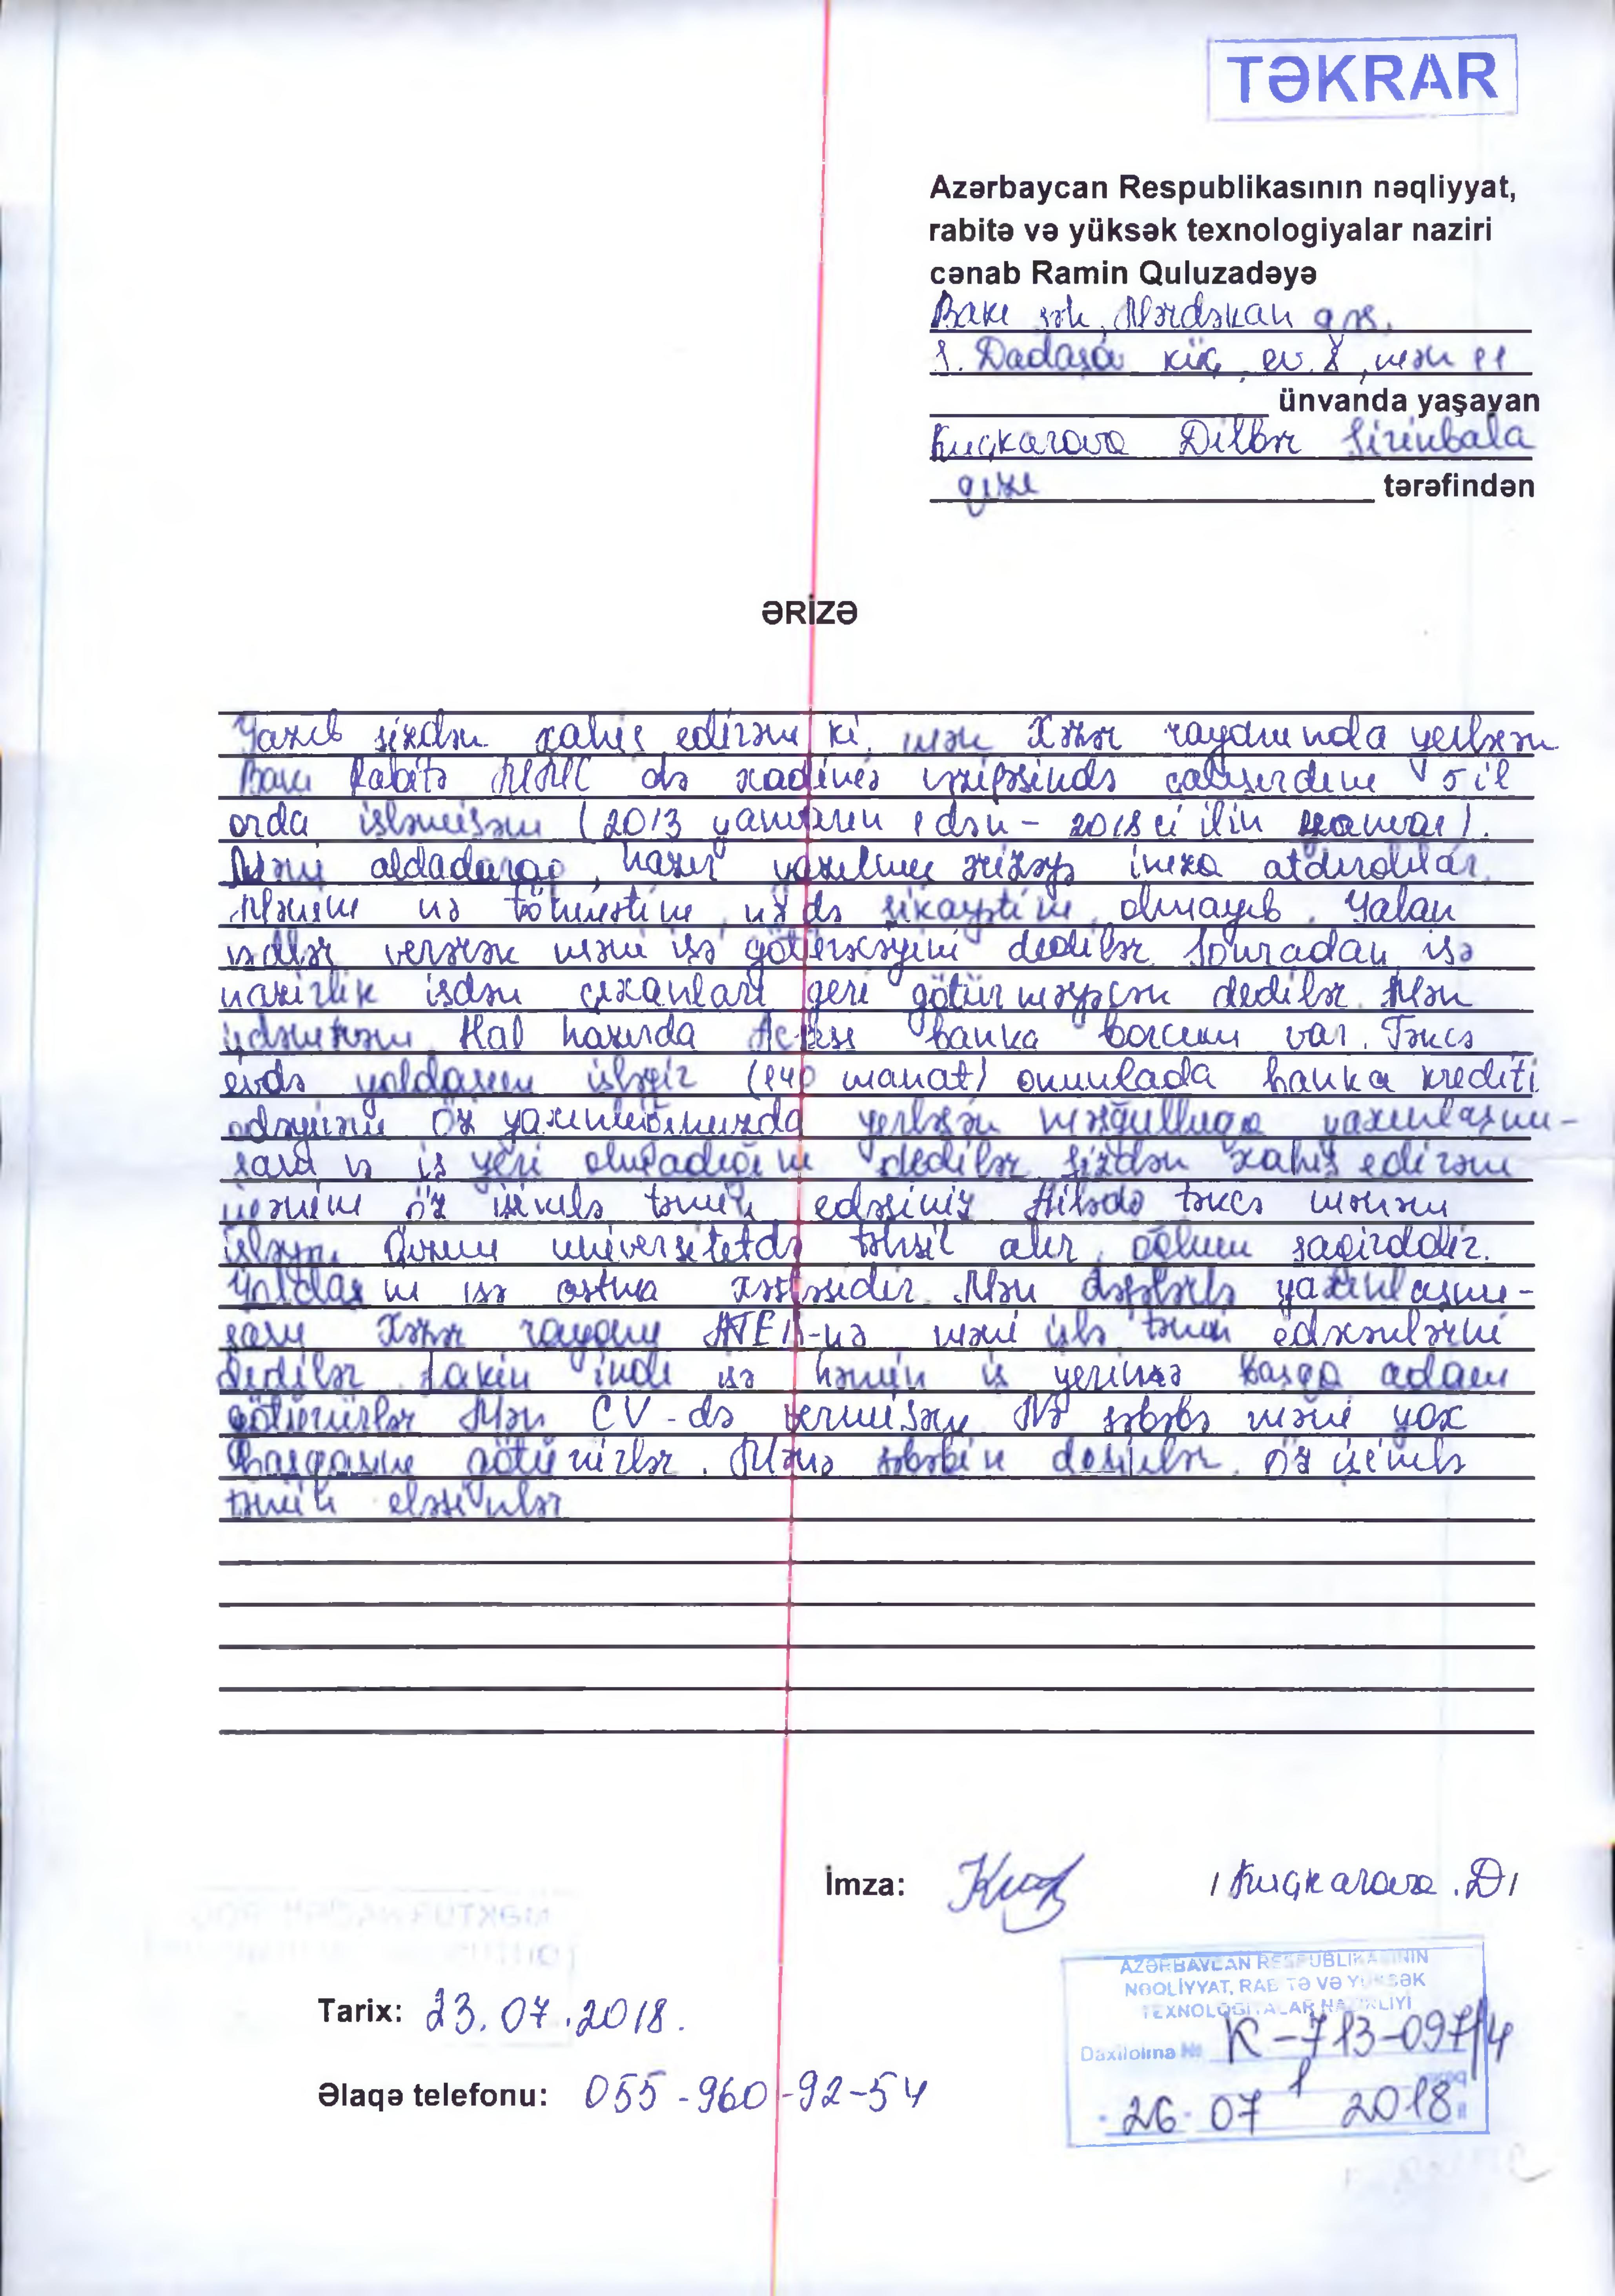 TƏKRAR
Azərbaycan Respublikasının nəqliyyat,
rabitə və yüksək texnologiyalar naziri
cənab Ramin Quluzadəyə
Bakı şəh, Mərdəkan qəs.
S. Dadaşo küç, ev. 8, mən 11
ünvanda yaşayan
Kuçkarova Dilbər Şirinbala
qızı tərəfindən
ƏRİZƏ
Yazıb sizdən xahiş edirəm ki, mən Xəzər rayonunda yerləşən
Bakı Rabitə də xadimə vəzifəsində çalışırdım 5 il
orda işləmişəm (2013 yanvarın 1 dən - 2018 ci ilin yanvar).
Məni aldadaraq, hazır yazılmış ərizəyə imza atdırdılar.
Mənim nə töhmətim, nə də şikayətim olmayıb. Yalan
vədlər verərək məni işə götürəcəyini dedilər. Sonradan isə
nazirlik işdən çıxanları geri götürməyəcən dedilər. Mən
Hal hazırda Access banka borcum var. Təkcə
evdə yoldaşım işləyir (140 manat) onunlada banka krediti
ödəyirəm Öz yaxınlığımızda yerləşən məşğulluğa yaxınlaşmı-
şam və iş yeri olmadığını dedilər. Sizdən xahiş edirəm
məni öz işimlə təmin edəsiniz. Ailədə təkcə mənəm
işləyən. Qızım universitetdə təhsil alır, oğlum şagirddir.
Yoldaşım isə astma xəstəsidir. Mən dəfələrlə yaxınlaşmı-
şam Xəzər rayonu ATEM-nə məni işlə təmin edəcəklərini
dedilər. Lakin indi isə həmin iş yerinə başqa adam
götürürlər Mən CV-də vermişəm. Nə səbəbə məni yox
başqasını götürürlər. Mənə səbəbin desinlər. Öz işimlə
təmin eləsinlər
İmza: / Kuçkarova .D/
AZƏRBAYCAN RESPUBLİKASININ
NƏQLİYYAT, RABİTƏ VƏ YÜKSƏK
TEXNOLOGİYALAR NAZİRLİYİ
Tarix: 23.07.2018.
Daxilolma № K-713-097/4
Əlaqə telefonu: 055-960-92-54
26 07 2018